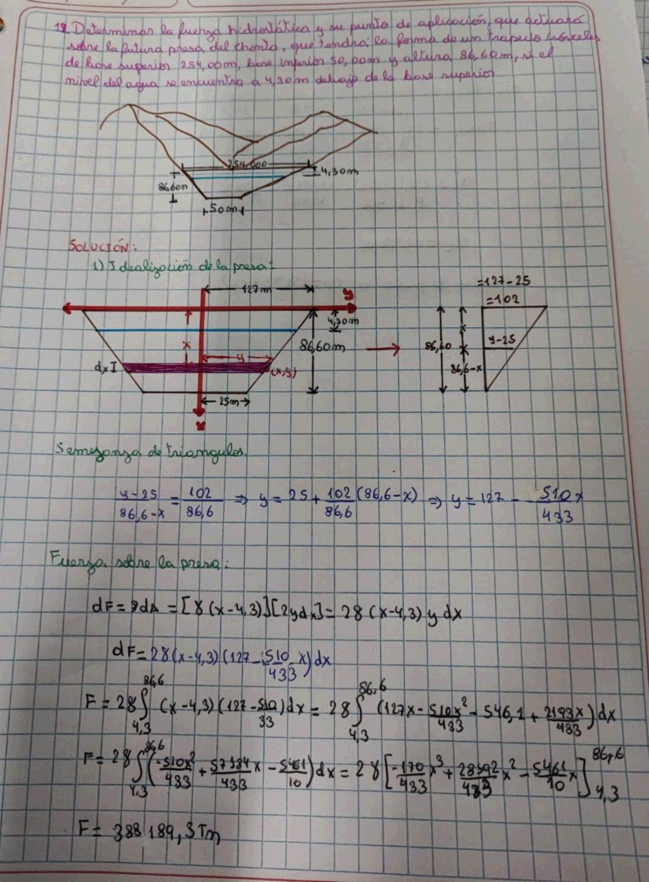 12. Determinar la fuerza hidrostática y su punto de aplicación, que actuará
sobre la futura presa del chonta, que tendrá la forma de un trapecio isósceles
de base superior 254,00m, base inferior 50,00m y altura 86,60m, si el
nivel del agua se encuentra a 4,30m debajo de la base superior
254,000
4,30m
86,60m
50m
SOLUCIÓN:
1) Idealización de la presa:
127m
y
4,30m
x
86,60m
y
dx
(x,y)
25m
x
=127-25
=102
x
86,60
y-25
86,6-x
Semejanza de triangulos
y-25/86,6-x = 102/86,6 ⇒ y = 25 + 102/86,6 (86,6-x) ⇒ y = 127 - 510x/433
Fuerza sobre la presa:
dF = PdA = [γ(x-4,3)][2ydx] = 2γ(x-4,3)ydx
dF = 2γ(x-4,3)(127 - 510x/433)dx
F = 2γ∫4,3^86,6 (x-4,3)(127-510/33)dx = 2γ∫4,3^86,6 (127x - 510x²/433 - 546,1 + 2193x/433)dx
F = 2γ∫4,3^86,6 (-510x²/433 + 57184/433 x - 5461/10)dx = 2γ[-170/433 x³ + 28592/433 x² - 5461/10 x]4,3^86,6
F = 388 189,5Tn